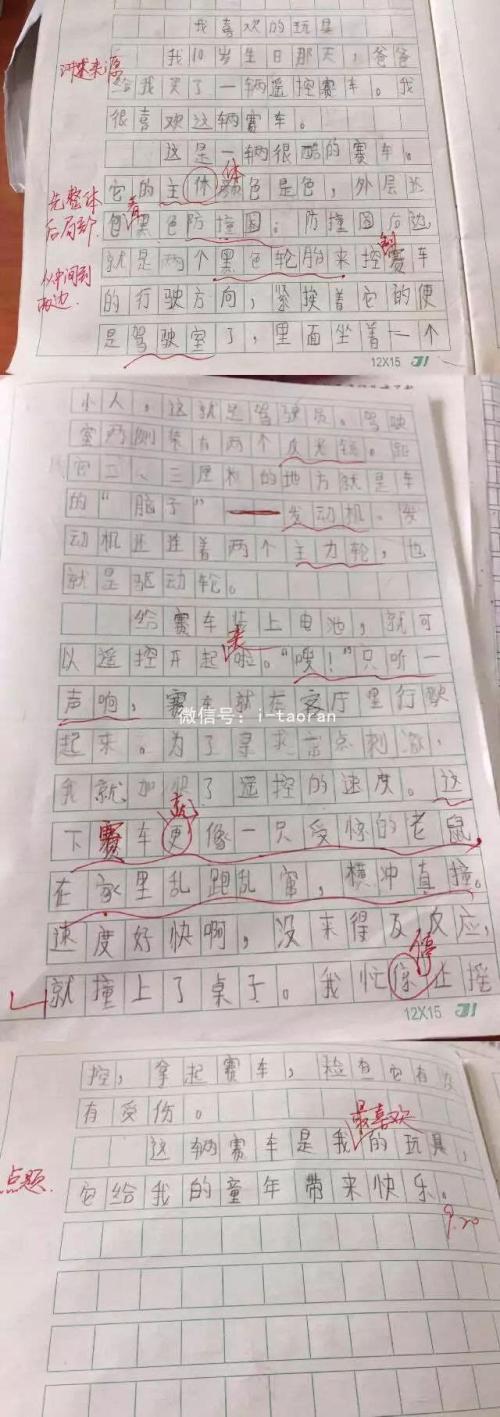 我喜欢的玩具
我10岁生日那天，爸爸
给我买了一辆遥控赛车。我
很喜欢这辆赛车。
这是一辆很酷的赛车。
体
它的主休颜色是色，外层还
先整体
后局部
有
包黑色防撞圈；防撞圈后边，
制
就是两个黑色轮胎来控赛车
从中间到
两边
的行驶方向，紧挨着它的便
是驾驶室了，里面坐着一个
12X15
小人，这就是驾驶员。驾驶
室两侧装有两个反光镜。距
它二、三厘米的地方就是车
的“脑子”——发动机。发
动机还连着两个主力轮，也
就是驱动轮。
给赛车装上电池，就可
来
以遥控开起啦。“嗖！”只听一
声响，赛车就在客厅里行驶
微信号：i-taoran
起来。为了寻求点刺激，
我就加快了遥控的速度。这
就
下赛车更像一只受惊的老鼠
在家里乱跑乱窜，横冲真撞。
速度好快啊，没来得及反应，
停
就撞上了桌子。我忙保止摇
12X15
控，拿起赛车，检有它有没
有受伤。
最喜欢
这辆赛车是我的玩具，
点题
它给我的童年带来快乐。
9.20